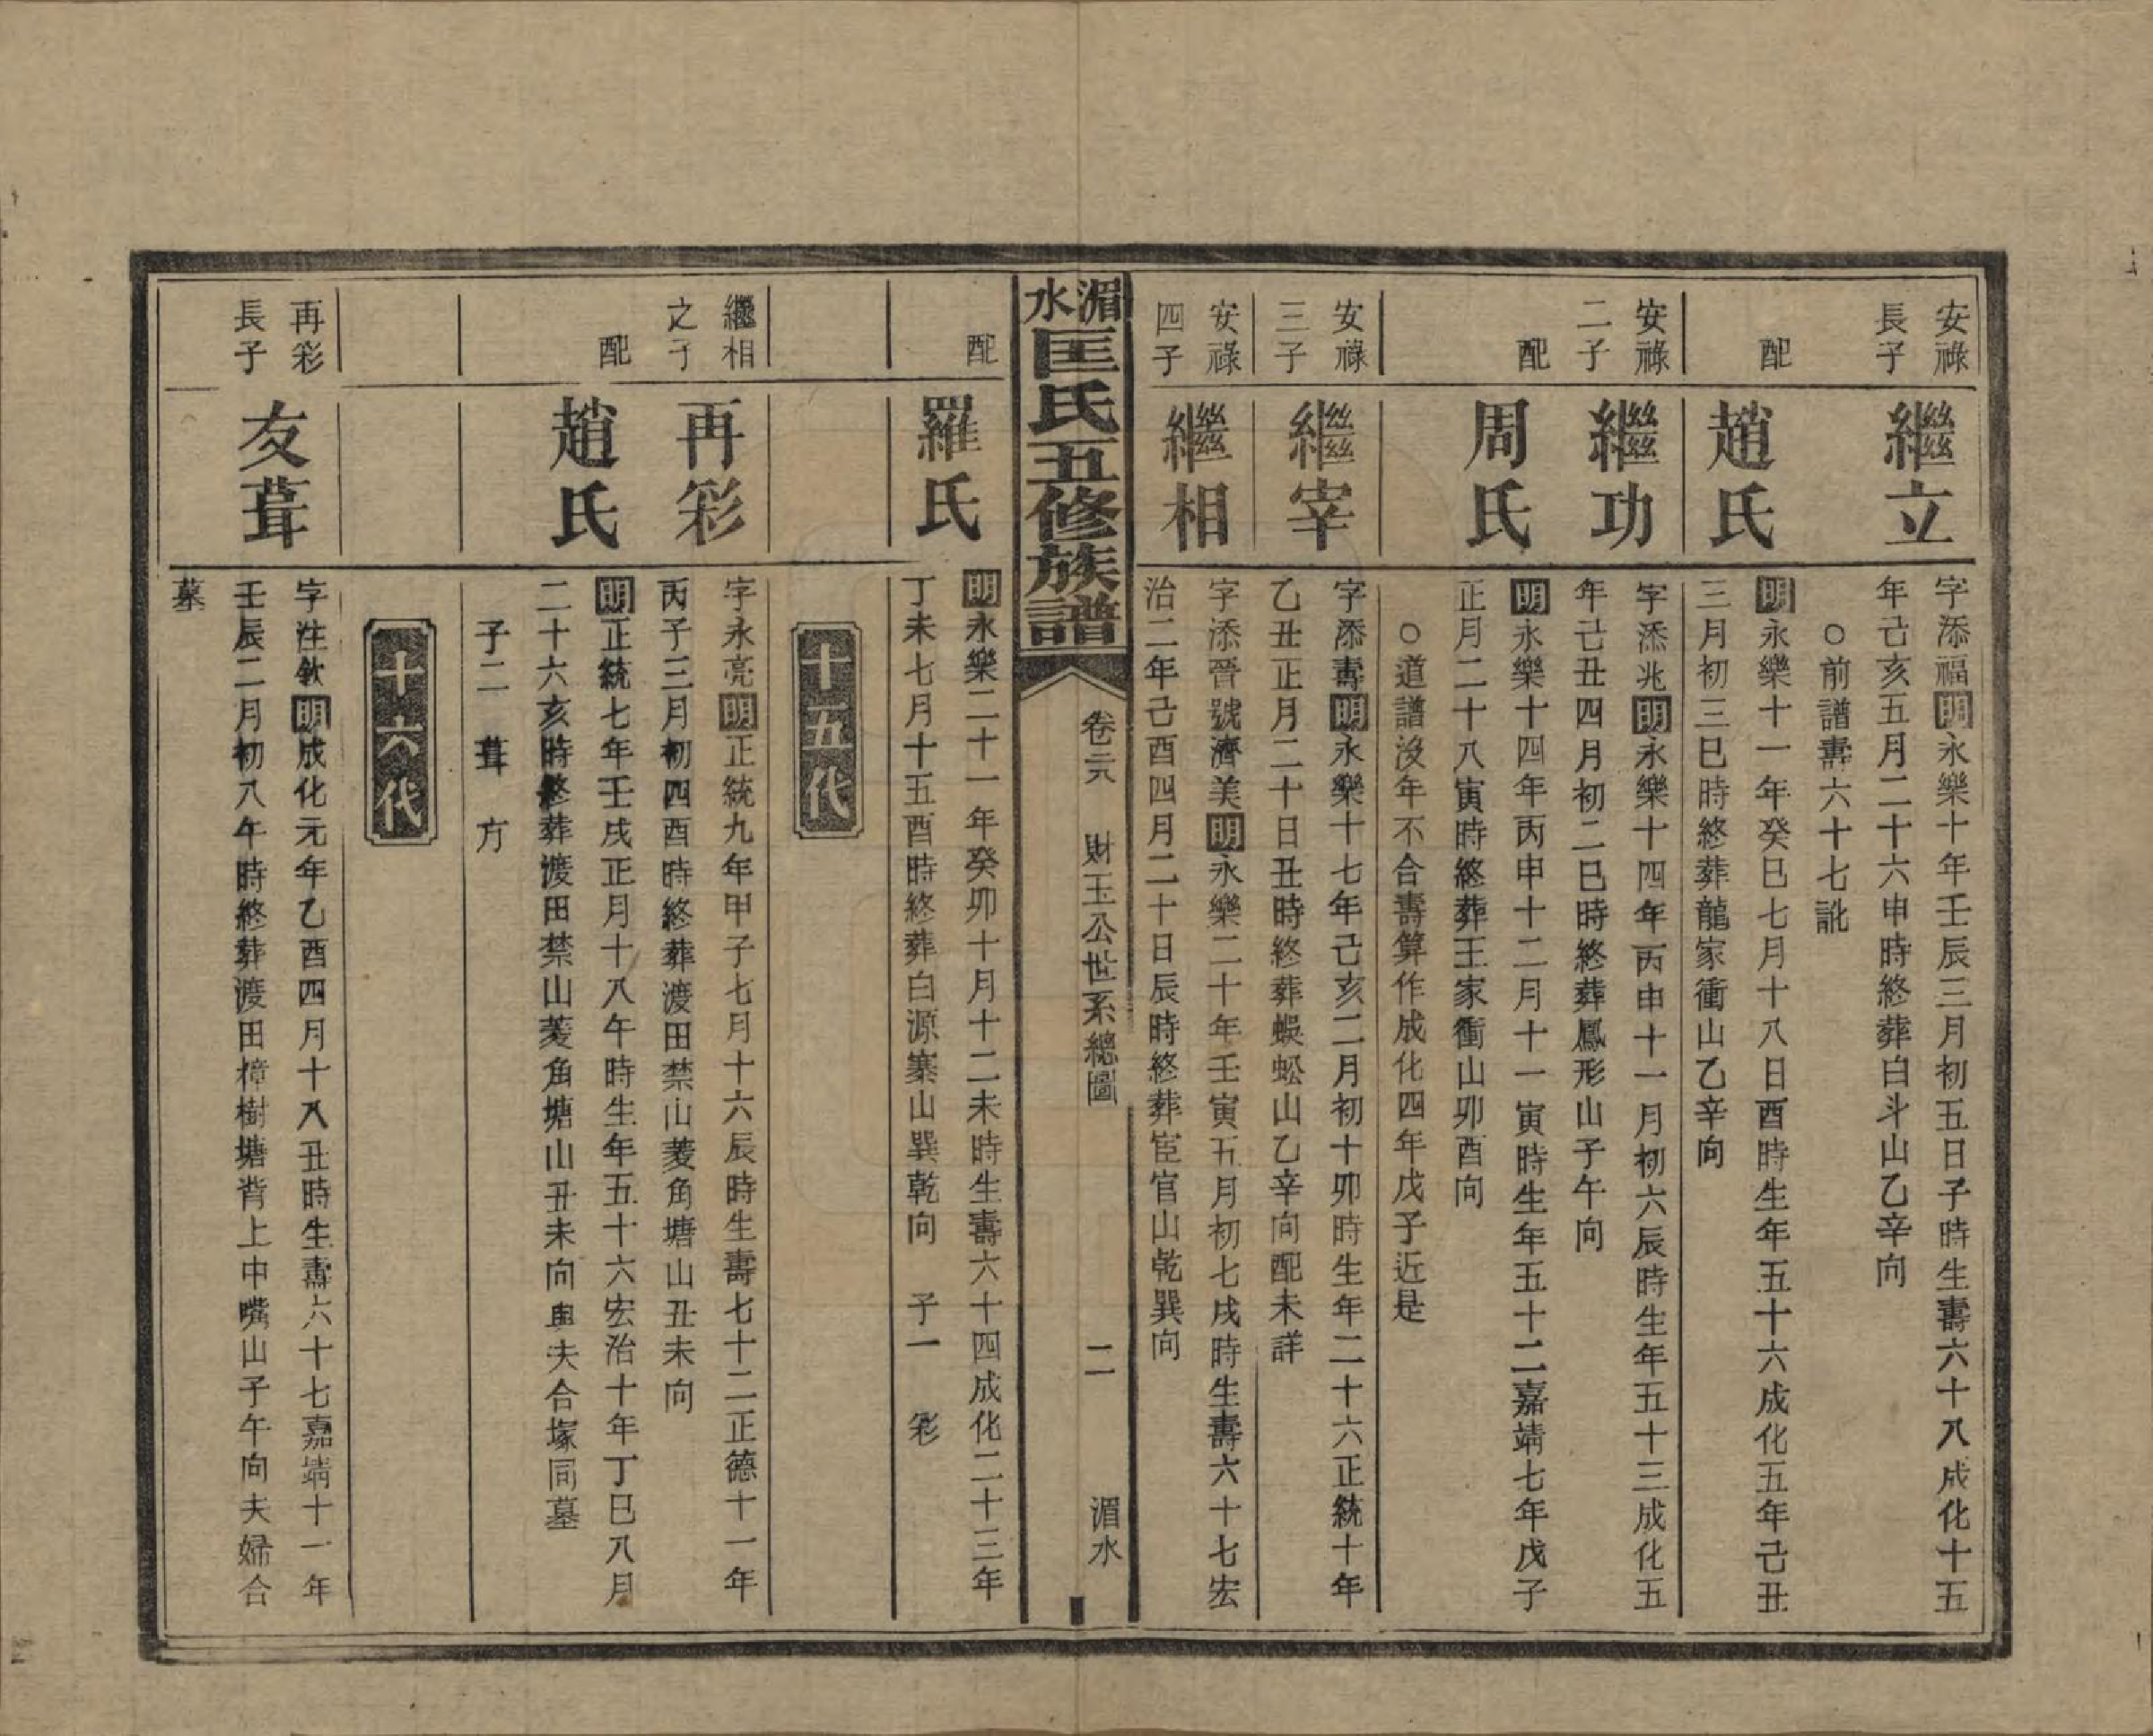 安祿
長子
繼立
字添福明永樂十年壬辰三月初五日子時生壽六十八成化十五
年己亥五月二十六申時終葬白斗山乙辛向
○前譜壽六十七訛
配
趙氏
明永樂十一年癸巳七月十八日酉時生年五十六成化五年己丑
三月初三巳時終葬龍家衝山乙辛向
安祿
二子
繼功
字添兆明永樂十四年丙申十一月初六辰時生年五十三成化五
年己丑四月初二巳時終葬鳳形山子午向
配
周氏
明永樂十四年丙申十二月十一寅時生年五十二嘉靖七年戊子
正月二十八寅時終葬王家衝山卯酉向
○道譜沒年不合壽算作成化四年戊子近是
安祿
三子
繼宰
字添壽明永樂十七年己亥二月初十卯時生年二十六正統十年
乙丑正月二十日丑時終葬蜈蚣山乙辛向配未詳
安祿
四子
繼相
字添晉號濟美明永樂二十年壬寅五月初七戌時生壽六十七宏
治二年己酉四月二十日辰時終葬宦官山乾巽向
湄水
匡氏五修族譜
卷元
財玉公世系總圖
二
湄水
配
羅氏
明永樂二十一年癸卯十月十二未時生壽六十四成化二十三年
丁未七月十五酉時終葬白源寨山巽乾向 子一 彩
十五代
繼相
之子
再彩
字永亮明正統九年甲子七月十六辰時生壽七十二正德十一年
丙子三月初四酉時終葬渡田禁山菱角塘山丑未向
配
趙氏
明正統七年壬戌正月十八午時生年五十六宏治十年丁巳八月
二十六亥時終葬渡田禁山菱角塘山丑未向與夫合塚同墓
子二 葺 方
十六代
再彩
長子
友葺
字性欽明成化元年乙酉四月十八丑時生壽六十七嘉靖十一年
壬辰二月初八午時終葬渡田樟樹塘背上中嘴山子午向夫婦合
墓